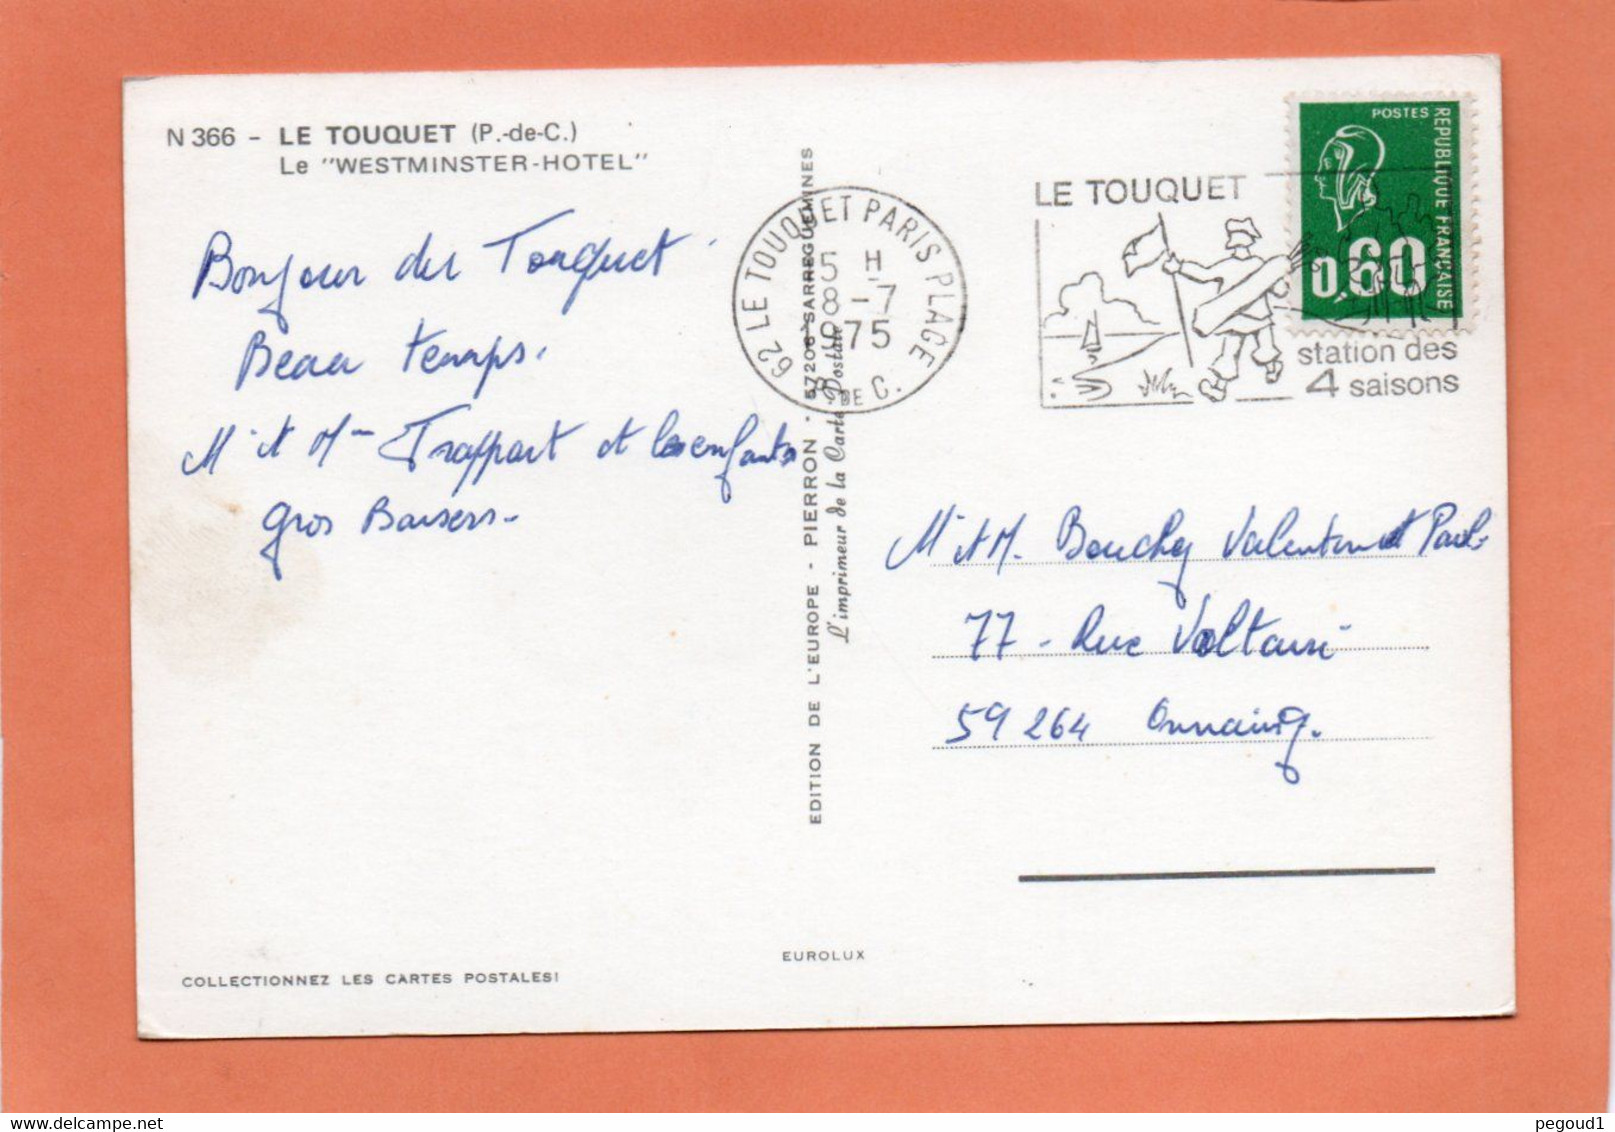 N 366 - LE TOUQUET (P.-de-C.)
Le "WESTMINSTER-HOTEL"
Bonjour du Touquet.
Beau temps.
Mr et Mme Trappart et les enfants
gros Baisers.
COLLECTIONNEZ LES CARTES POSTALES!
EDITION DE L'EUROPE - PIERRON - 57206 SARREGUEMINES
L'imprimeur de la Carte Postale
EUROLUX
62 LE TOUQUET PARIS PLAGE
15 H
8 -7
1975
P. DE C.
LE TOUQUET
station des
4 saisons
POSTES
REPUBLIQUE FRANCAISE
0,60
Mr et M. Bouchy Valentin et Paul
77 - Rue Voltaire
59264 Onnaing.
pegoud1